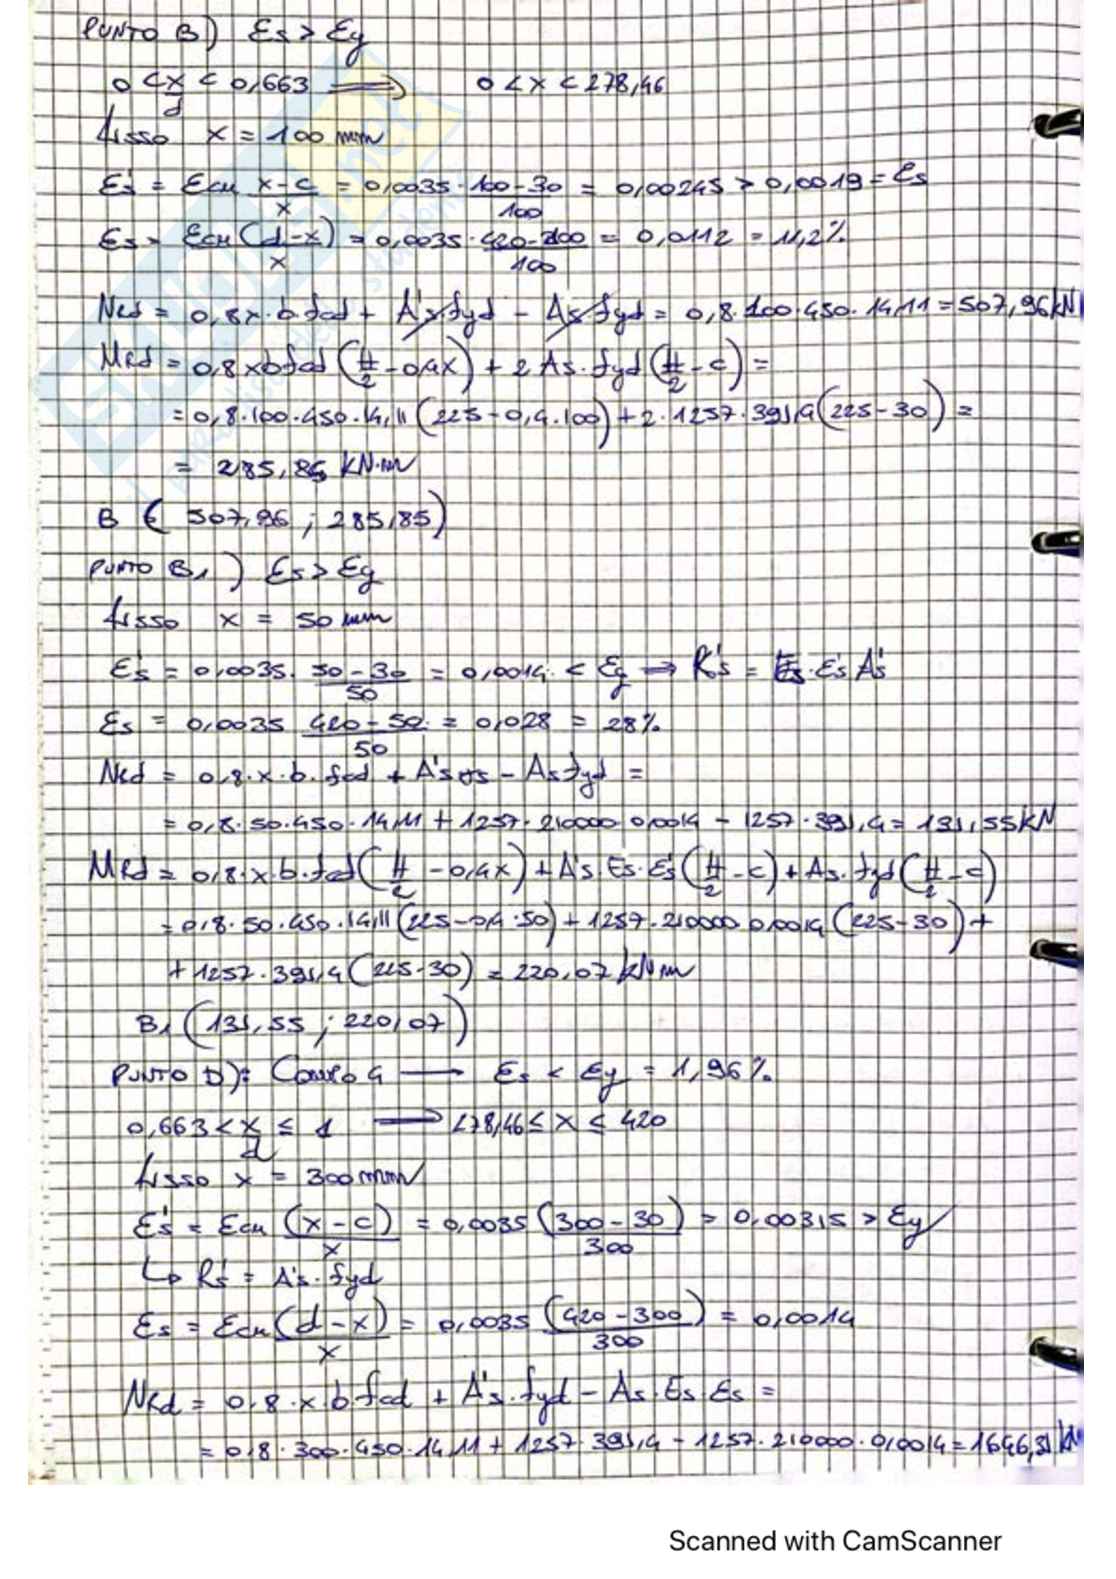 PUNTO B) Es > Ey
0 < x/d < 0,663 ⟹ 0 < x < 278,46
fisso x = 100 mm
E's = Ecu x-c/x = 0,0035 · 100-30/100 = 0,00245 > 0,0019 = Es
Es = Ecu (d-x)/x = 0,0035 · 420-100/100 = 0,0112 = 11,2%
NRd = 0,8x·b·fcd + A's fyd - As fyd = 0,8·100·450·14,11 = 507,96 kN
MRd = 0,8xbfcd (H/2 - 0,4x) + 2 As·fyd (H/2 - c) =
= 0,8·100·450·14,11 (225 - 0,4·100) + 2·1257·391,4 (225-30) =
= 285,85 kN·m
B ( 507,96 ; 285,85)
PUNTO B1) Es > Ey
fisso x = 50 mm
E's = 0,0035 · 50-30/50 = 0,0014 < Ey ⟹ R's = Es·E's A's
Es = 0,0035 420-50/50 = 0,028 = 28%
NRd = 0,8·x·b·fcd + A's σs - As fyd =
= 0,8·50·450·14,11 + 1257·210000·0,0014 - 1257·391,4 = 131,55 kN
MRd = 0,8·x·b·fcd (H/2 - 0,4x) + A's·Es·E's (H/2 - c) + As·fyd (H/2 - c)
= 0,8·50·450·14,11 (225-0,4·50) + 1257·210000·0,0014 (225-30) +
+ 1257·391,4 (225-30) = 220,07 kN m
B1 (131,55 ; 220,07)
PUNTO D): CAMPO 4 ⟶ Es < Ey = 1,96%
0,663 < x/d ≤ 1 ⟹ 278,46 ≤ x ≤ 420
fisso x = 300 mm
E's = Ecu (x-c)/x = 0,0035 (300-30)/300 = 0,00315 > Ey
↳ R's = A's·fyd
Es = Ecu (d-x)/x = 0,0035 (420-300)/300 = 0,0014
NRd = 0,8·x·b·fcd + A's·fyd - As·Es·Es =
= 0,8·300·450·14,11 + 1257·391,4 - 1257·210000·0,0014 = 1646,31 kN
Scanned with CamScanner